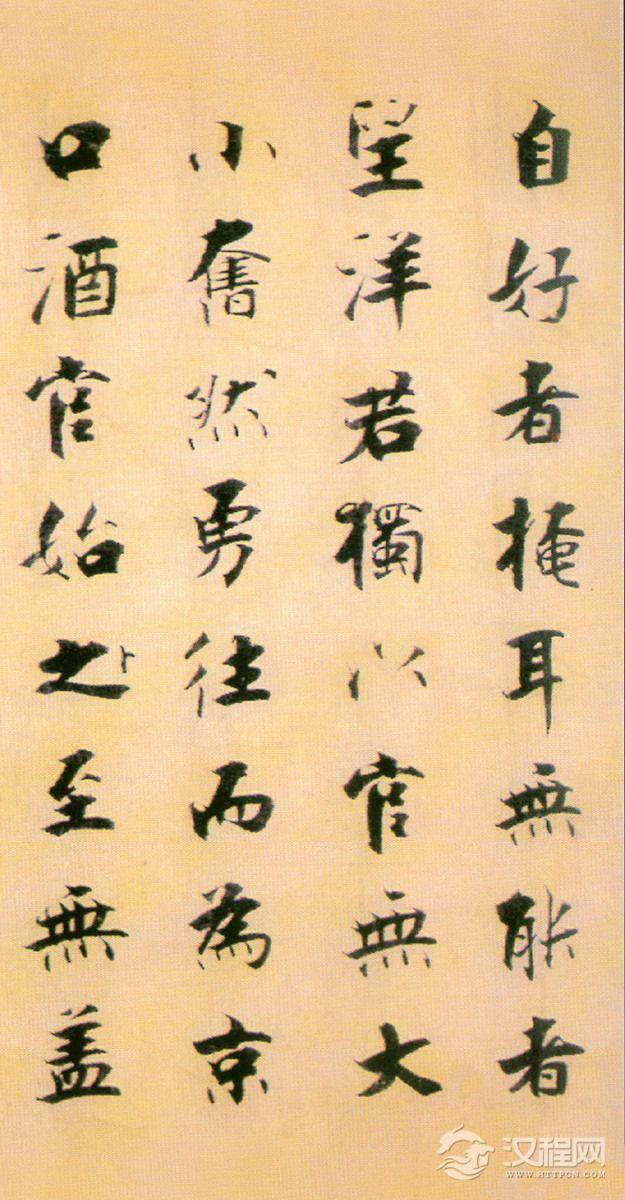 自好者掩耳無能者
望洋若獨以官無大
小奮然勇往而為京
口酒官始之卜至無盖
汉程网
WWW.HTTPCN.COM